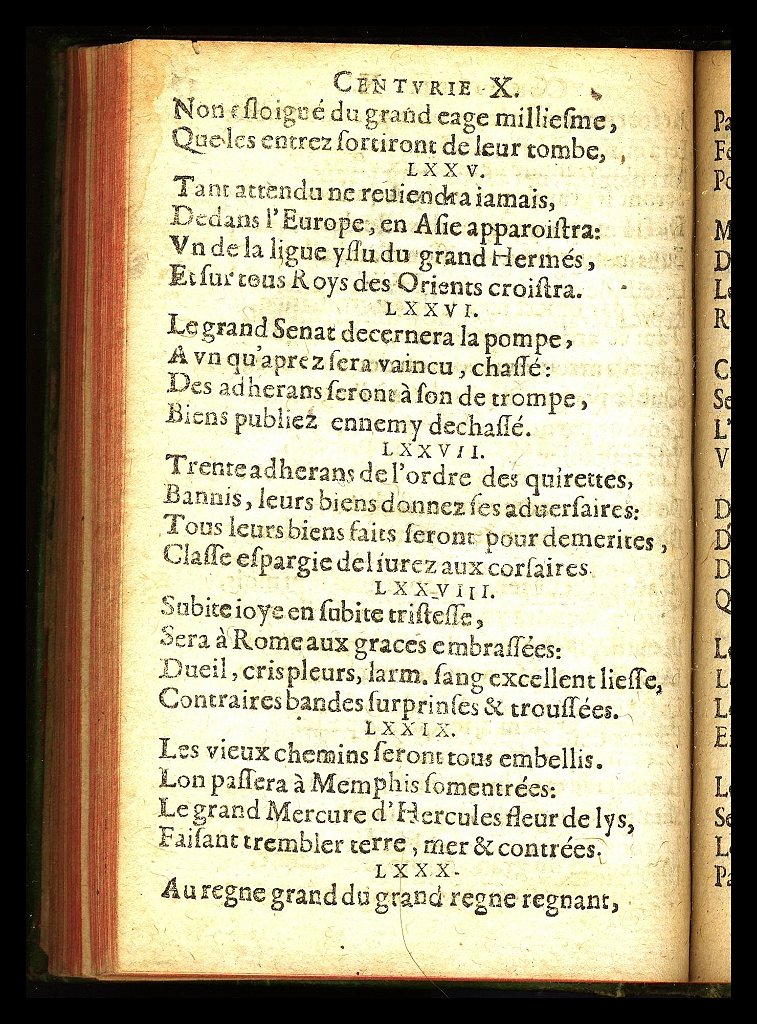 CENTVRIE X.
Non esloigné du grand eage milliesme,
Que les entrez sortiront de leur tombe,
LXXV.
Tant attendu ne reuiendra iamais,
Dedans l'Europe, en Asie apparoistra:
Vn de la ligue yssu du grand Hermés,
Et sur tous Roys des Orients croistra.
LXXVI.
Le grand Senat decernera la pompe,
A vn qu'aprez sera vaincu, chassé:
Des adherans seront à son de trompe,
Biens publiez ennemy dechassé.
LXXVII.
Trente adherans de l'ordre des quirettes,
Bannis, leurs biens donnez ses aduersaires:
Tous leurs biens faits seront pour demerites,
Classe espargie deliurez aux corsaires.
LXXVIII.
Subite ioye en subite tristesse,
Sera à Rome aux graces embrassées:
Dueil, cris pleurs, larm. sang excellent liesse,
Contraires bandes surprinses & troussées.
LXXIX.
Les vieux chemins seront tous embellis.
Lon passera à Memphis somentrées:
Le grand Mercure d'Hercules fleur de lys,
Faisant trembler terre, mer & contrées.
LXXX.
Au regne grand du grand regne regnant,
Pa
Fe
Po
M
D
Le
R
C
Se
L'
V
D
D'
D
Q
Le
L
L
E
Le
Se
Le
Pa